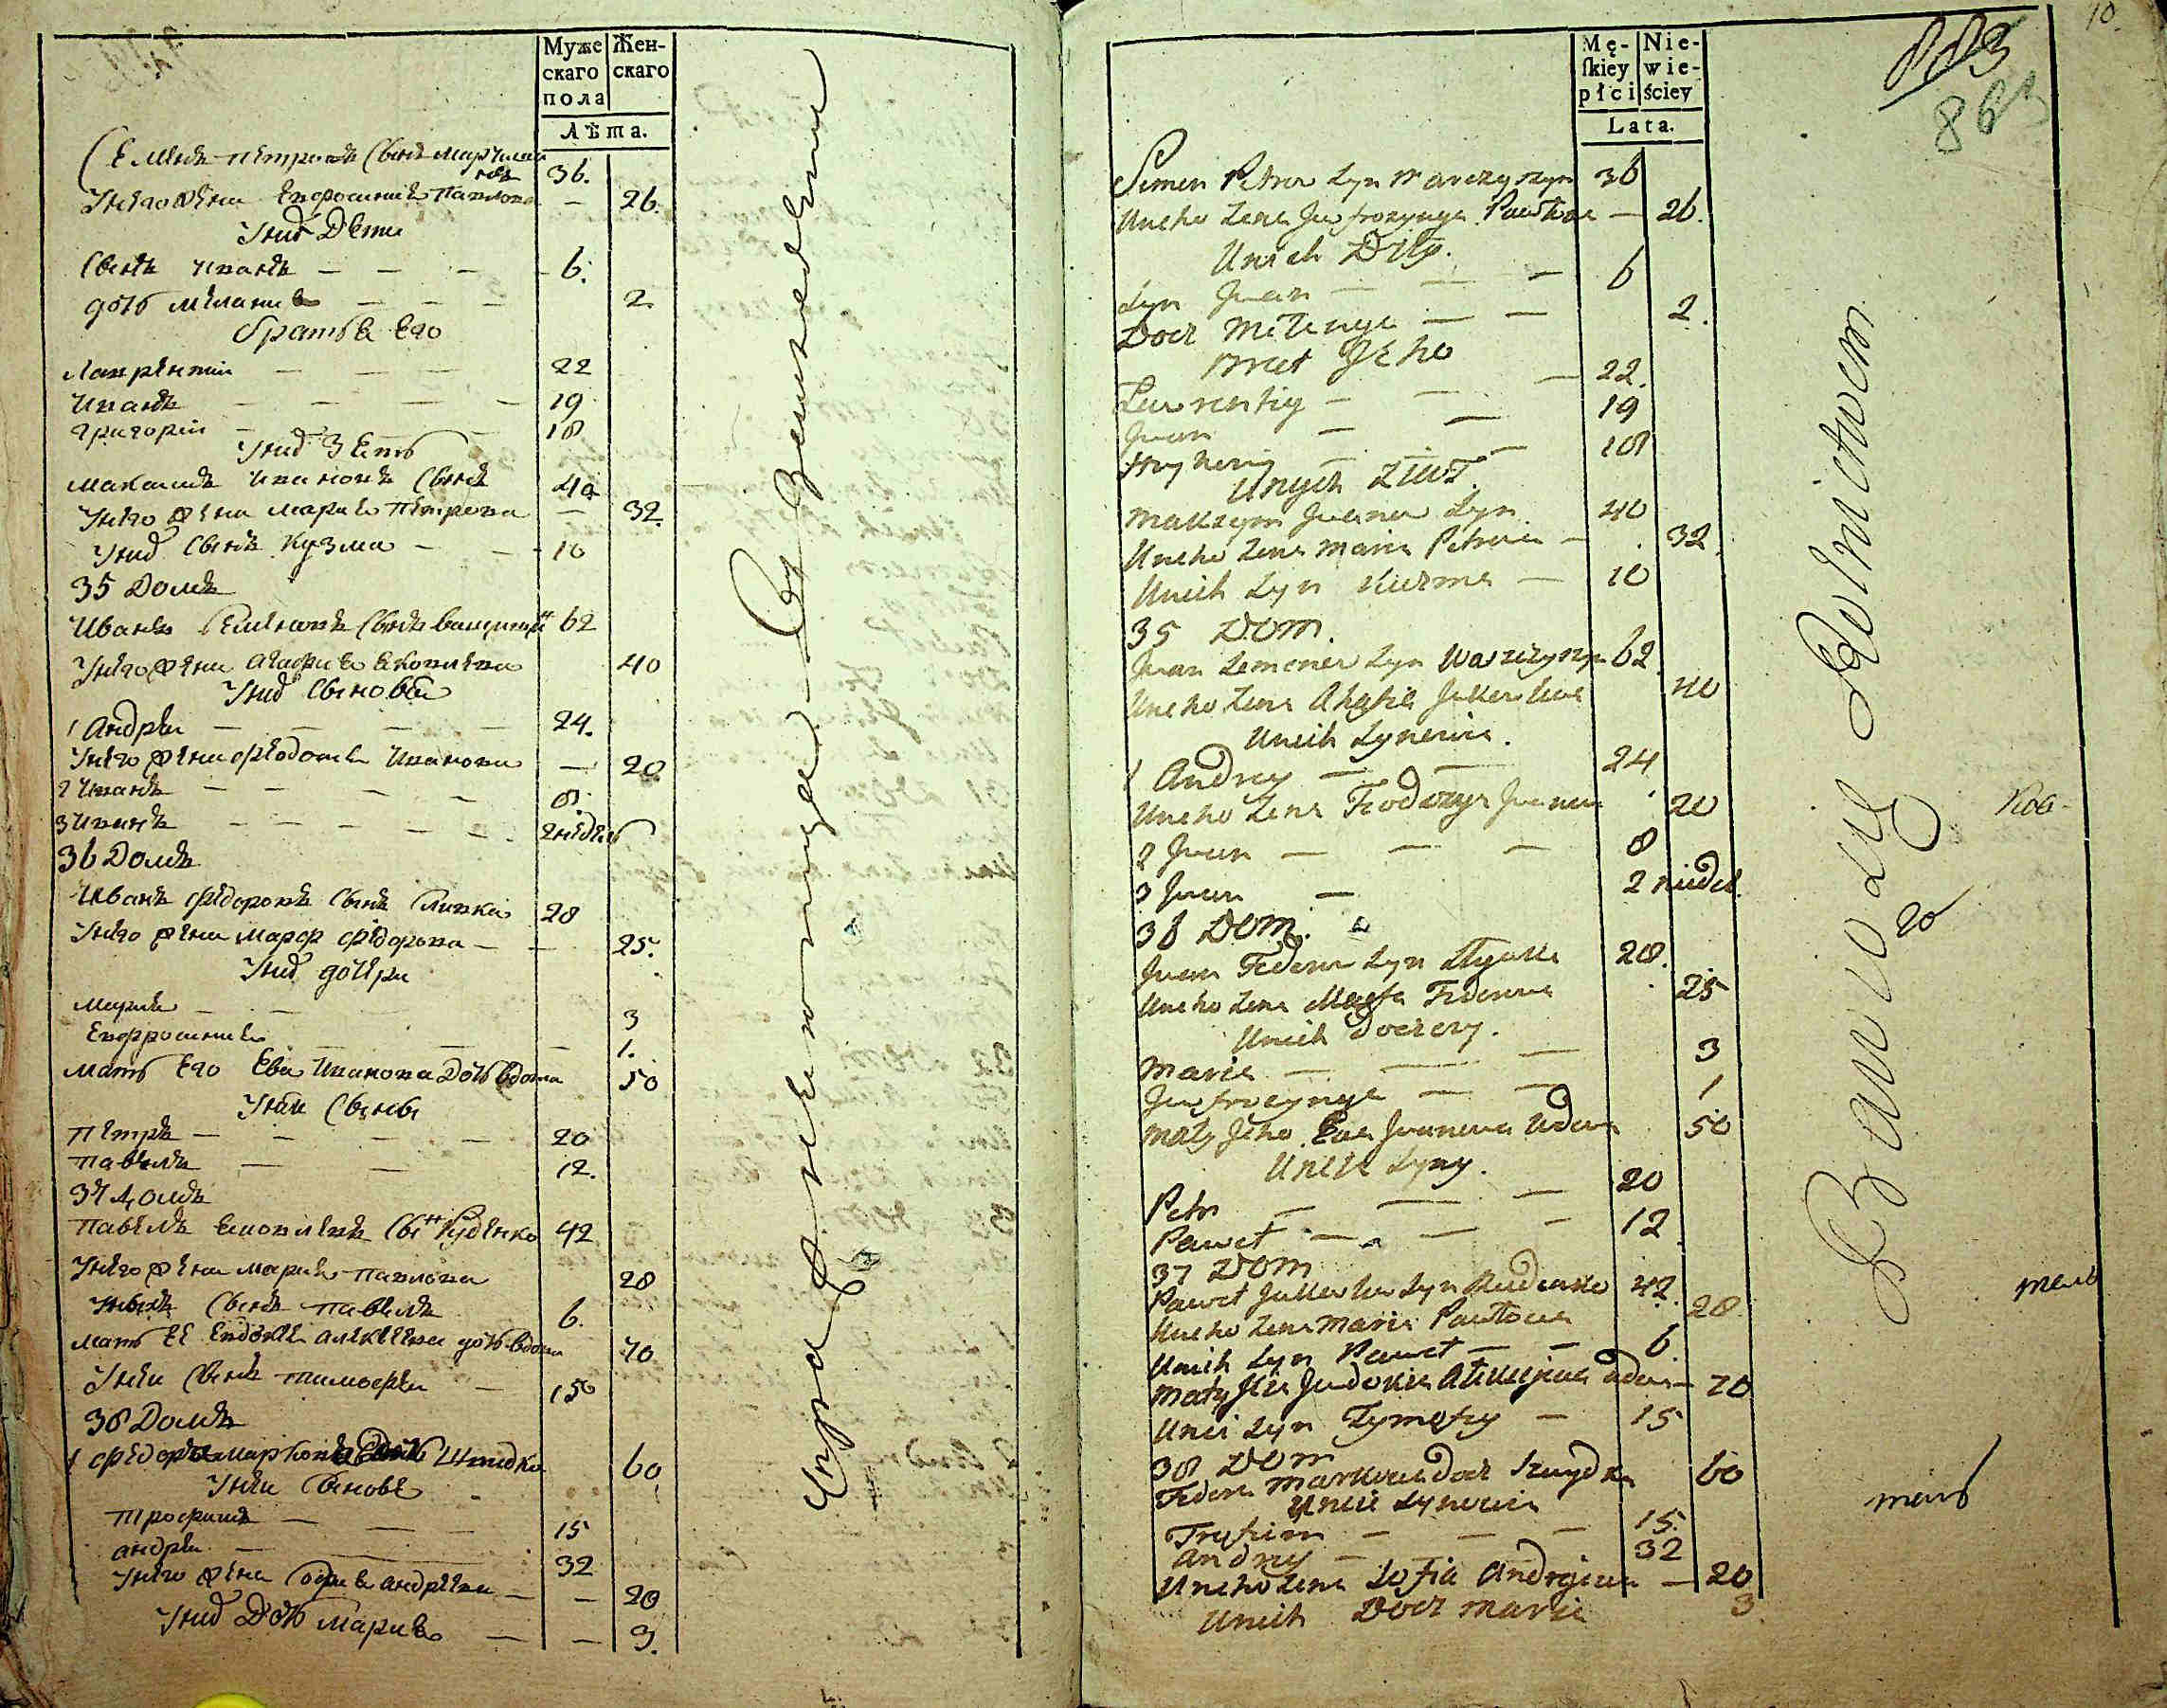 Муже
скаго
пола
Жен-
скаго
Лѣта.
Семенъ Петровъ сынъ Марчишинъ 36.
У него жена Евфросиния Павлова — 26.
У них Дети
Сынъ Иванъ — — — 6.
дочь Мелания — — — 2
братья Его
Лаврентий — — — 22
Иванъ — — — — 19
Григорий — — 18
У них Зять
Максимъ Ивановъ Сынъ 40
У него жена Мария Петрова — 32.
У них Сынъ Кузма — — 10
35 Домъ
Иванъ Семеновъ Сынъ 62
У него жена Агафия Яковлева 40
У них Сыновья
1 Андрей — — — — 24.
У него жена Феодосия Иванова — 20
2 Иванъ — — — — 8.
3 Иванъ — — — — — — 2 недель
36 Домъ
Иванъ Федоровъ Сынъ 28
У него жена Марфа Федорова — — 25.
У них дочери
Мария — — — 3
Евфросиния — — — 1.
Мать Его Ева Иванова Дочь вдова 50
У неи Сыны
Петръ — — — — 20
Павелъ — — 12.
37 Домъ
Павелъ Яковлевъ Сынъ Руденко 42
У него жена Мария Павлова 28
У них Сынъ Павелъ 6.
Мать ее Евдокия Алексеева дочь вдова 70
У неи Сынъ Тимофей — 15
38 Домъ
1 Федора Маркова Швидка 60
У неи Сыновья
Трофимъ — — — 15
Андрей — 32
У него жена София Андреева — — 20
У них Дочь Мария — — 3.
883
863
10
Mę-
ſkiey
płci
Nie-
wie-
ściey
Lata.
Simen Petrow Syn Marczyszyn 36
Uneho Zena Jewfrozynya Pawłowa — 26.
Unich Dity.
Syn Jwan — — — 6
Docz Melanya — — 2.
Brat Jeho
Lawrentiy — — — 22.
Jwan — — 19
Hryhoriy — — 18
Unych Ziat.
Maksym Jwanow Syn 40
Uneho Zena Maria Petrowa — 32.
Unich Syn Kuzma — 10
35 Dom.
Jwan Semenow Syn 62
Uneho Zena Ahafia Jakowlewa 40
Unich Synowia.
1 Andrey — — 24
Uneho Zena Feodozya Jwanowa 20
2 Jwan — — — 8
3 Jwan — 2 nidel
36 Dom.
Jwan Fedorow Syn 28.
Uneho Zena Marfa Fedorowa 25
Unich Doczery.
Maria — — — 3
Jewfrozynya — — 1
Maty Jeho Ewa Jwanowa Udowa 50
Uneie Syny.
Petr — — — 20
Paweł — — — 12
37 Dom
Paweł Jakowlew Syn Rudenko 42.
Uneho Zena Maria Pawłowa 28
Unich Syn Paweł — — 6.
Maty Jeie Jewdokia Alexiejewa Udowa — 70
Uneie Syn Tymofiey — 15
38 Dom
Fedora Markowa Docz Szwydka 60
Uneie Synowia
Trofim — — — 15.
Andrey — — 32
Uneho Zena Sofia Andrejewa — 20
Unich Docz Maria 3.